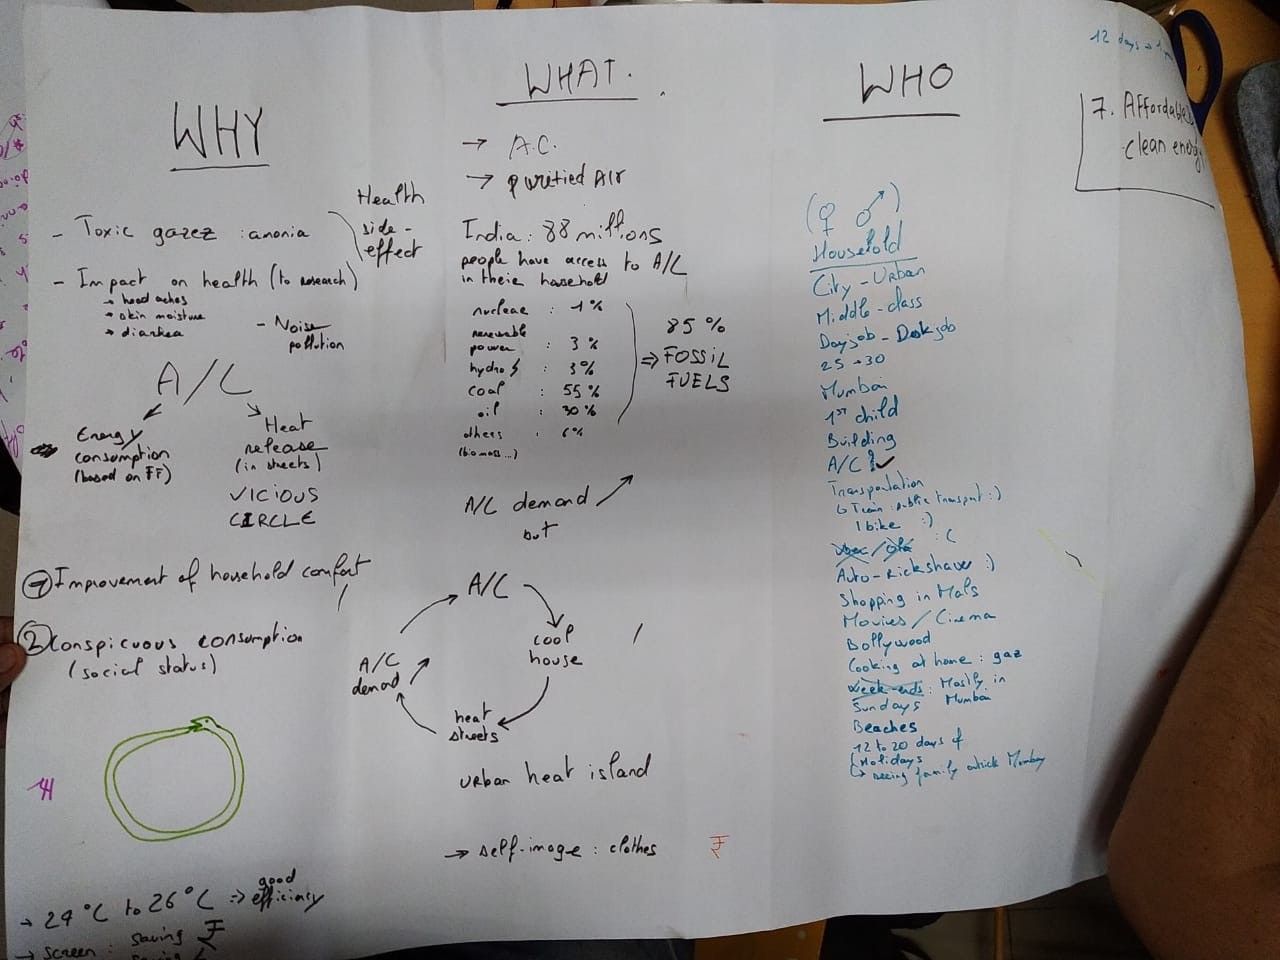 WHY
- Toxic gazez : amonia
- Impact on health (to research)
→ head aches
→ skin moisture
→ diarrhea
Health
side-
effect
- Noise
pollution
A/C
Energy
consumption
(based on FF)
Heat
release
(in streets)
VICIOUS
CIRCLE
① Improvement of household comfort
② Conspicuous consumption
(social status)
→ 24°C to 26°C => good
efficiency
→ screen : saving ₹
WHAT.
→ A.C.
→ purified Air
India : 88 millions
people have access to A/C
in their household
nuclear : 1%
renewable
power : 3%
hydro : 3%
coal : 55%
oil : 30%
others : 6%
(biomass...)
=> 85%
FOSSIL
FUELS
A/C demand
but
A/C
cool
house
heat
streets
A/C
demand
urban heat island
→ self-image : clothes
₹
WHO
(♀ ♂)
Household
City - Urban
Middle-class
Day job - Desk job
25 → 30
Mumbai
1st child
Building
A/C ✓
Transportation
↳ Train : public transport :)
1 bike :)
Uber / Ola :(
Auto-Rickshaw :)
Shopping in Mals
Movies / Cinema
Bollywood
Cooking at home : gaz
Week-ends : Mostly in
Sundays Mumbai
Beaches
12 to 20 days of
Holidays
↳ seeing family outside Mumbay
12 days →
7. Affordable
clean energy